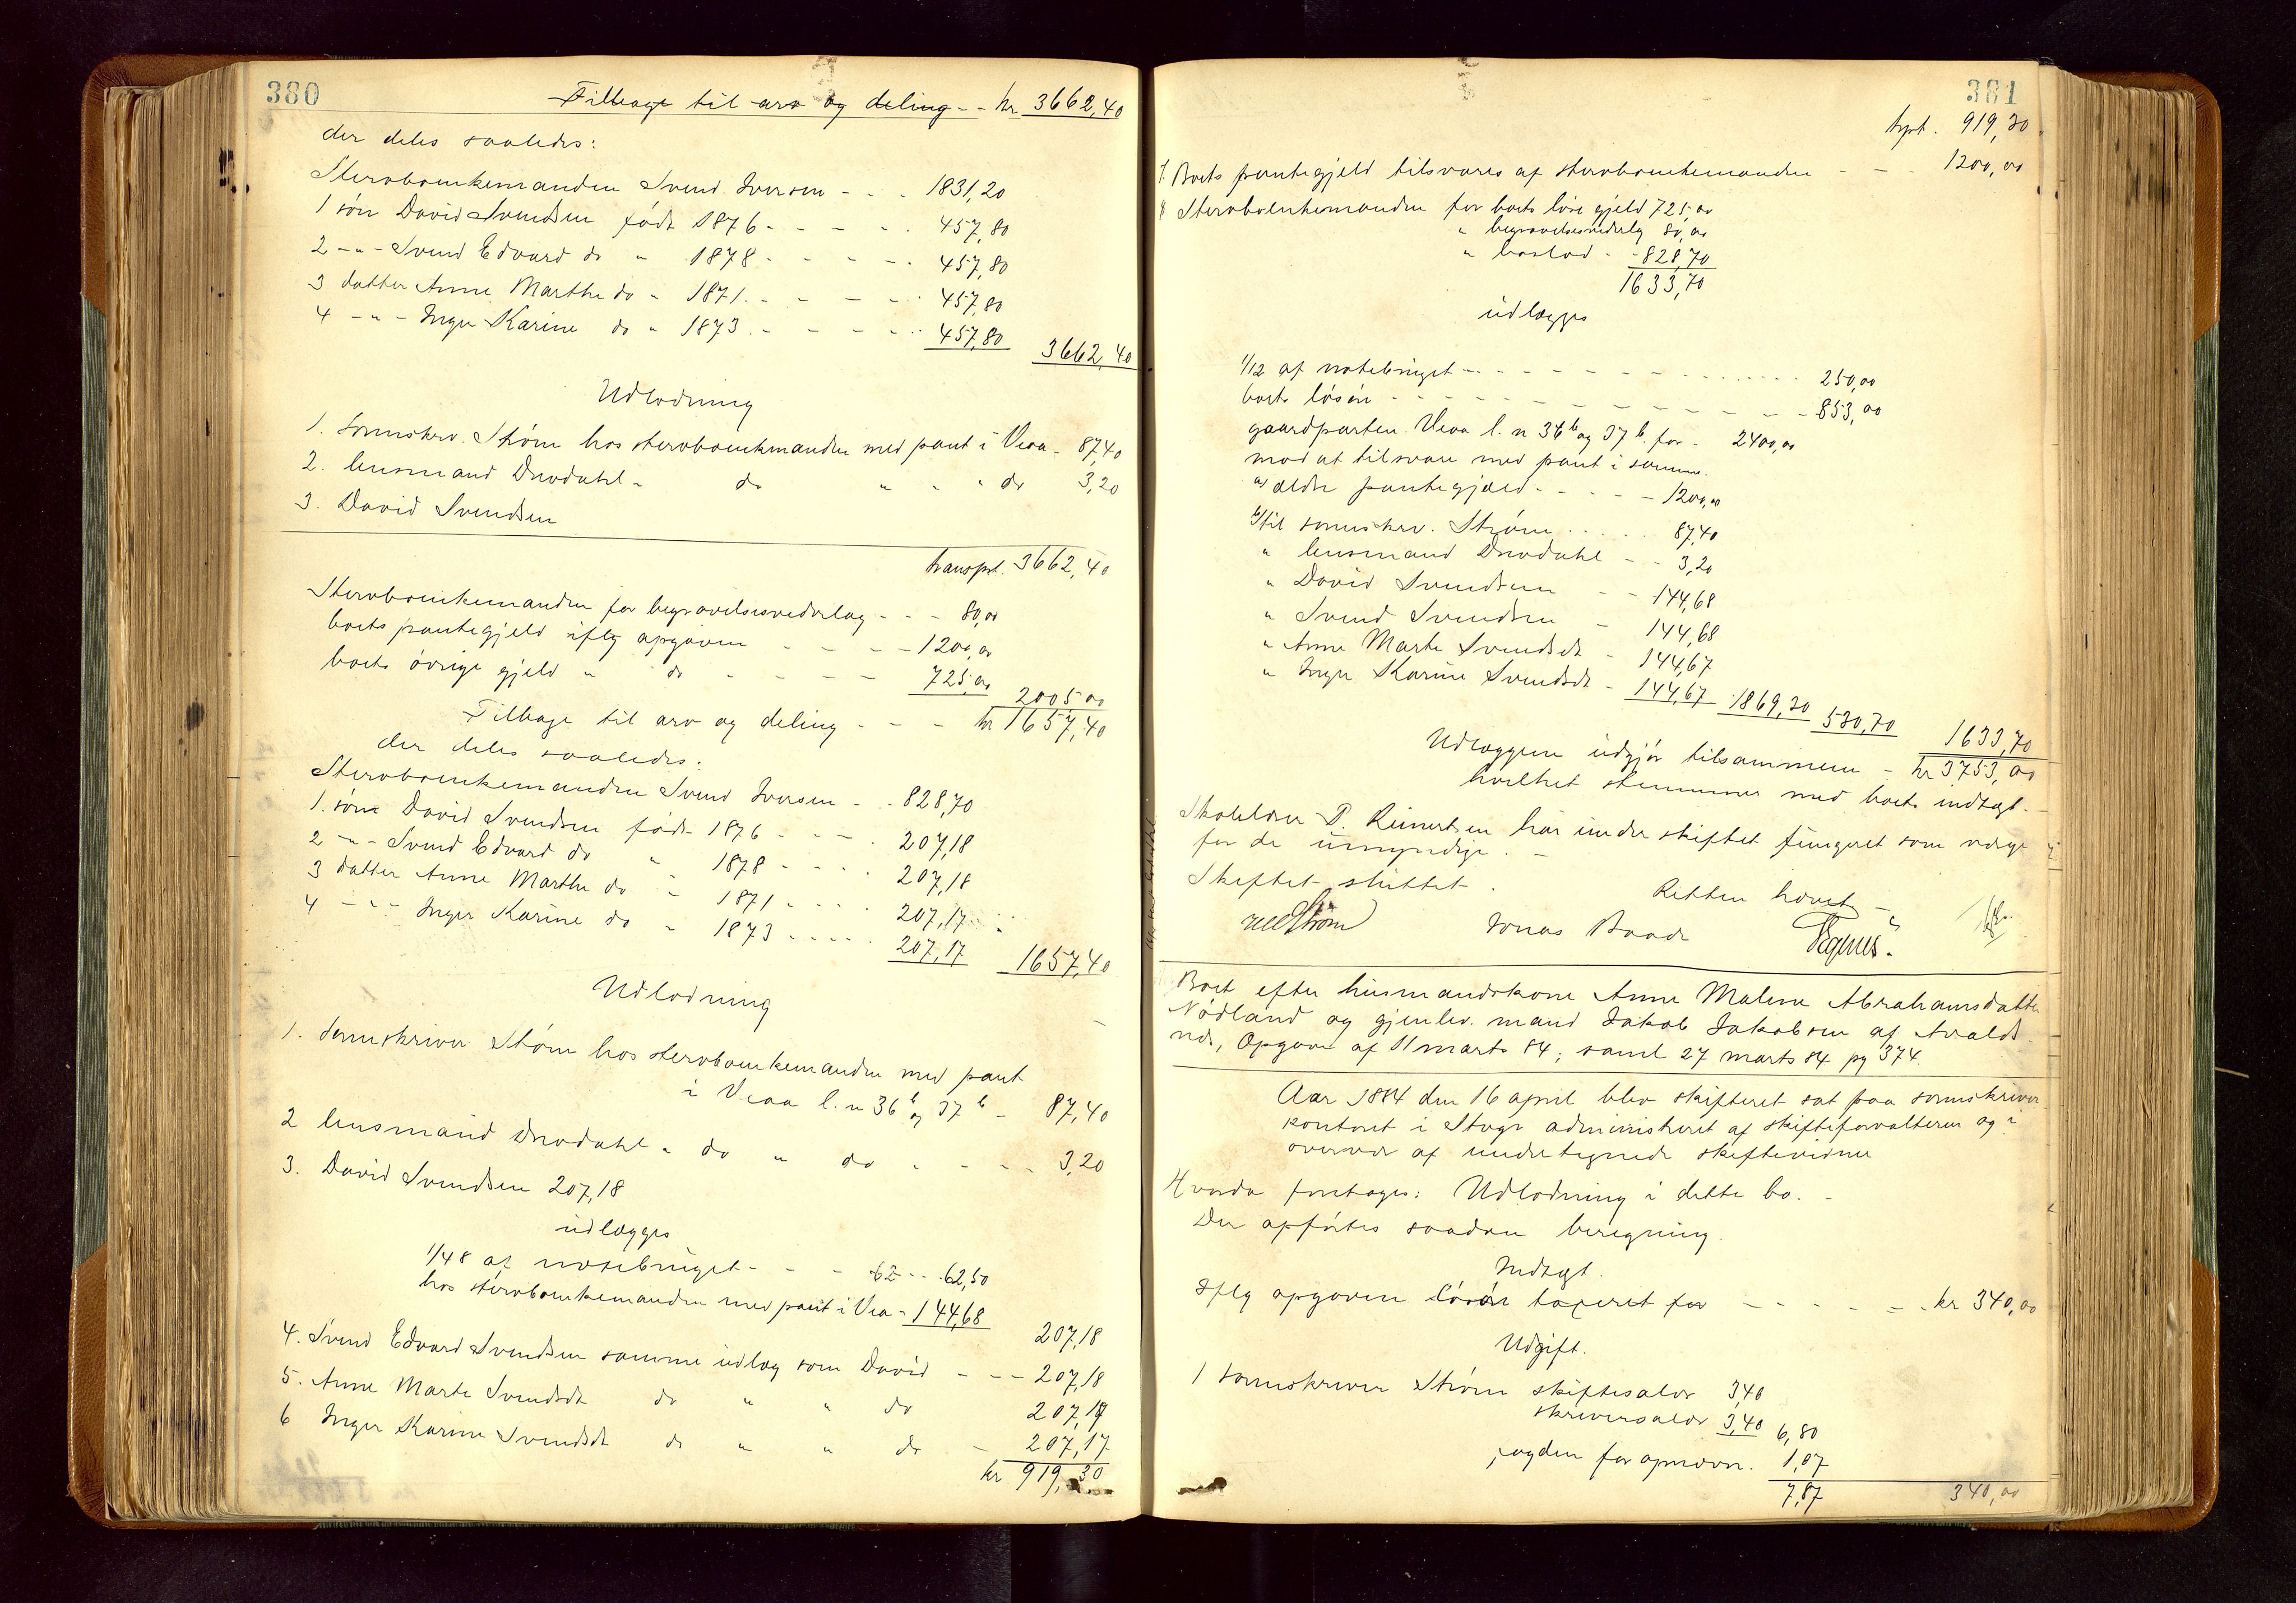 380
Tilbage til arv og deling - - kr 3662,40
der deles saaledes:
Stervboenkemanden Svend Iversen - - - 1831,20
1 søn David Svendsen født 1876 - - - - - 457,80
2 - " - Svend Edvard do " 1878 - - - - - 457,80
3 datter Anne Marthe do " 1871 - - - - - 457,80
4 - " - Inger Karine do " 1873 - - - - - 457,80 3662,40
Udlodning
1. Sorenskrv. Strøm hos stervboenkemanden med pant i Veaa - 87,40
2. lensmand Drovdahl " do " " " do 3,20
3. David Svendsen
transprt. 3662,40
Stervboenkemanden for begravelsesvederlag - - - 80,00
boets pantegjeld iflg opgaven - - - - 1200,00
boets øvrige gjeld " do - - - - - 725,00 2005,00
Tilbage til arv og deling - - - kr 1657,40
der deles saaledes:
Stervboenkemanden Svend Iversen - - 828,70
1. søn David Svendsen født 1876 - - - - 207,18
2 - " - Svend Edvard do " 1878 - - - - 207,18
3 datter Anne Marthe do " 1871 - - - - 207,17
4 - " - Inger Karine do " 1873 - - - - - 207,17 1657,40
Udlodning
1. Sorenskriver Strøm hos stervboenkemanden med pant
i Veaa l. n 36 b og 37 b - 87,40
2 lensmand Drovdahl " do " do - - - - 3,20
3. David Svendsen 207,18
udlægges
1/48 af notebruget - - - 62 - - 62,50
hos stervboenkemanden med pant i Vea - 144,68 207,18
4. Svend Edvard Svendsen samme udlæg som David - - - 207,18
5. Anne Marte Svendsdt do " " do 207,17
6 Inger Karine Svendsdt do " " do - 207,17
kr 919,30
381
trpt. 919,30
7. Boets pantegjeld tilsvares af stervboenkemanden - - 1200,00
8 Stervboenkemanden for boets løse gjeld 725,00
" begravelsesvederlag 80,00
" boslod - - 828,70
1633,70
udlægges
1/12 af notebruget - - - - - - - - - 250,00
boets løsøre - - - - - - - - - - 853,00
gaardparten Veaa l. n 36 b og 37 b. for - 2400,00
mod at tilsvare med pant i samme.
a) ældre pantegjæld - - - - - 1200,00
b) til sorenskrv. Strøm - - - - 87,40
" lensmand Drovdahl - - 3,20
" David Svendsen - - 144,68
" Svend Svendsen - 144,68
" Anne Marte Svendsdt - 144,67
" Inger Karine Svendsdt - 144,67 1869,30 530,70 1633,70
Udlæggene udgjør tilsammen - kr 3753,00
hvilket stemmer med boets indtægt. -
Skolelærer P. Reinertsen har under skiftet fungeret som verge
for de umyndige. -
Skiftet sluttet.
Retten hævet -
Strøm Jonas Baade
Boet efter husmandskone Anne Malene Abrahamsdatter
Nødland og gjenlev. mand Jakob Jakobsen af Avalds
nes, Opgave af 11 marts 84; saml 27 marts 84 pg 374.
Aar 1884 den 16 april blev skifteret sat paa sorenskriver
kontoret i Stoge administreret af skifteforvalteren og i
overvær af undertegnede skiftevidner
Hvorda foretages: Udlodning i dette bo. -
Der opførtes saadan beregning.
Indtægt.
Iflg opgaven løsøre taxeret for - - - - - - kr 340,00
Udgift.
1 Sorenskriver Strøm skiftesalær 3,40
skriversalær 3,40 6,80
fogden for opnævn. 1,07
7,87 340,00